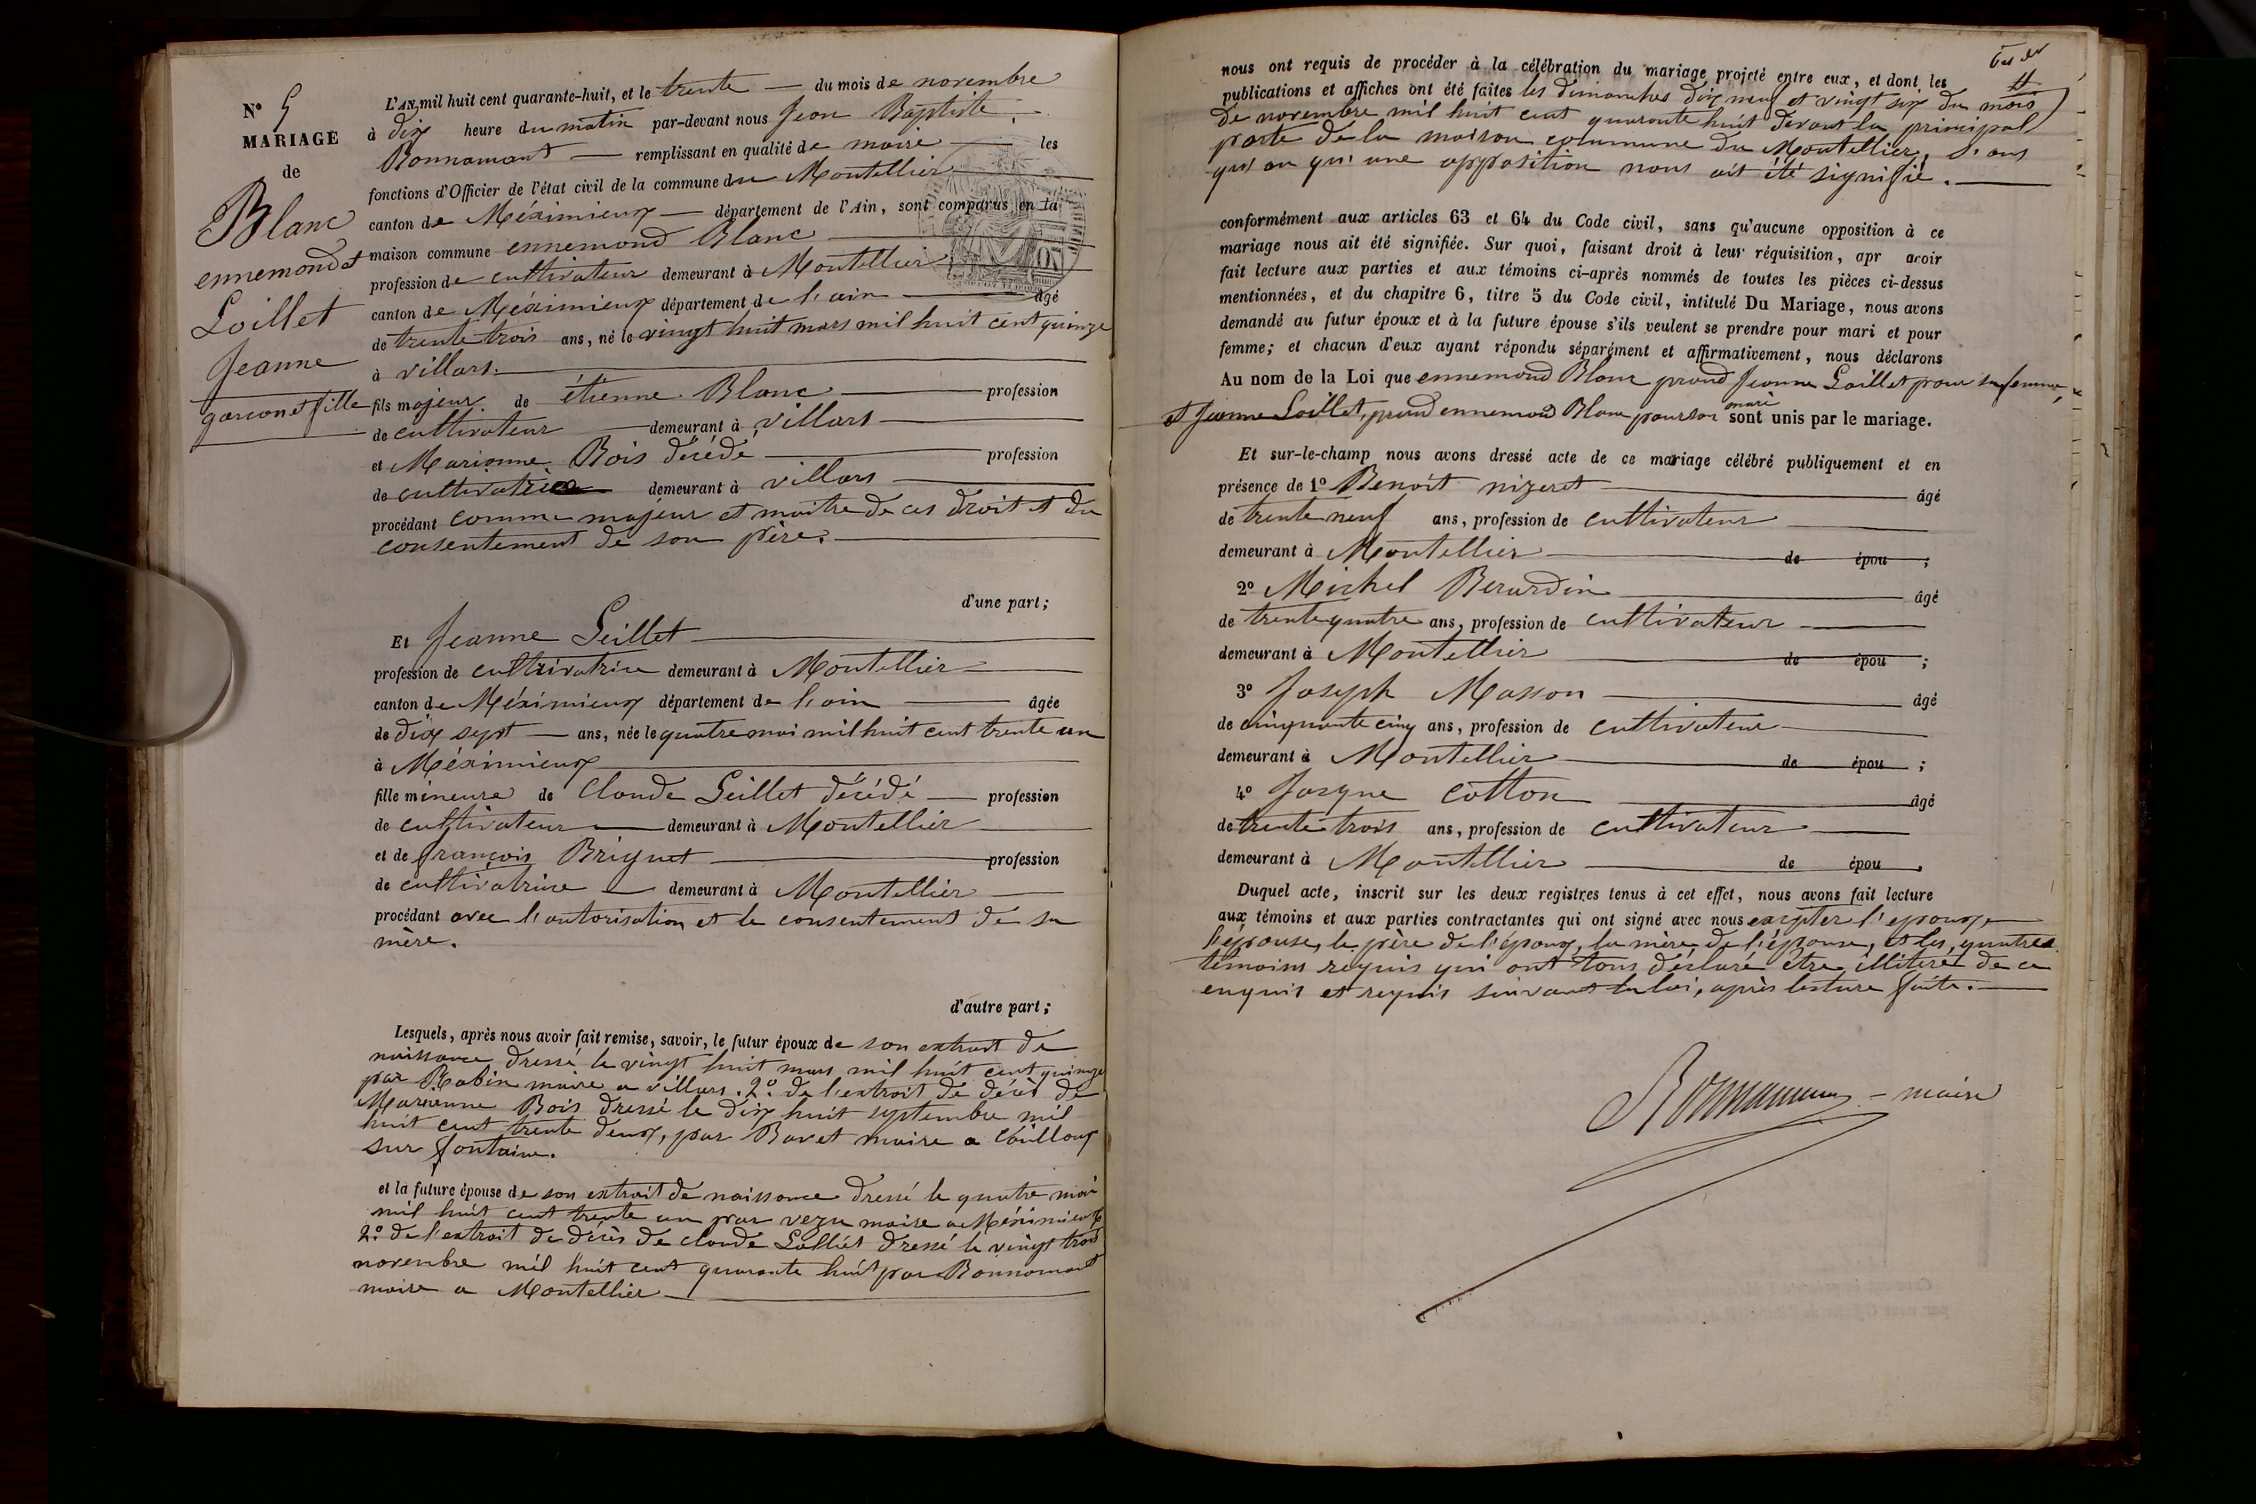 N° 5
MARIAGE
de
Blanc
ennemond et
Loillet
Jeanne
garcon et fille
L'AN mil huit cent quarante-huit, et le trente du mois de novembre
à dix heure du matin par-devant nous Jean Baptiste
Bonnamant remplissant en qualité de maire les
fonctions d'Officier de l'état civil de la commune du Montellier
canton de Méximieux département de l'Ain, sont comparus en la
maison commune ennemond Blanc
profession de cultivateur demeurant à Montellier
canton de Méximieux département de l'ain âgé
de trente trois ans, né le vingt huit mars mil huit cent quinze
à villars.
fils majeur de étienne Blanc profession
de cultivateur demeurant à villars
et Marianne Bois décédé profession
de cultivatrice demeurant à villars
procédant comme majeur et maitre de ces droit et du
consentement de son père.
d'une part;
Et Jeanne Leillet
profession de cultivatrice demeurant à Montellier
canton de Méximieux département de l'ain âgée
de dix sept ans, née le quatre mai mil huit cent trente un
à Méximieux
fille mineure de Claude Leillet décédé profession
de cultivateur demeurant à Montellier
et de françois Briguet profession
de cultivatrice demeurant à Montellier
procédant avec l'autorisation et le consentement de sa
mère.
d'autre part;
Lesquels, après nous avoir fait remise, savoir, le futur époux de son extrait de
naissance dressé le vingt huit mars mil huit cent quinze
par Robin maire a villars. 2° de l'extrait de décès de
Marianne Bois dressé le dix huit septembre mil
huit cent trente deux, par Bavet maire a Chilloux
sur fontaine.
et la future épouse de son extrait de naissance dressé le quatre mai
mil huit cent trente un par vezu maire a Méximieux
2° de l'extrait de décès de claude Lolliet dressé le vingt trois
novembre mil huit cent quarante huit par Bonnamant
maire a Montellier
nous ont requis de procéder à la célébration du mariage projeté entre eux, et dont les
publications et affiches ont été faites les dimanches dix neuf et vingt six du mois
de novembre mil huit cent quarante huit devant la principal
porte de la maison commune du Montellier, s'ans
qu'au qu'une opposition nous ait été signifié.
conformément aux articles 63 et 64 du Code civil, sans qu'aucune opposition à ce
mariage nous ait été signifiée. Sur quoi, faisant droit à leur réquisition, apr avoir
fait lecture aux parties et aux témoins ci-après nommés de toutes les pièces ci-dessus
mentionnées, et du chapitre 6, titre 5 du Code civil, intitulé Du Mariage, nous avons
demandé au futur époux et à la future épouse s'ils veulent se prendre pour mari et pour
femme; et chacun d'eux ayant répondu séparément et affirmativement, nous déclarons
Au nom de la Loi que ennemond Blanc prend Jeanne Loillet pour sa femme,
et Jeanne Loillet, prend ennemond Blanc pour son mari sont unis par le mariage.
Et sur-le-champ nous avons dressé acte de ce mariage célébré publiquement et en
présence de 1° Benoit nizeret âgé
de trente neuf ans, profession de cultivateur
demeurant à Montellier de épou ;
2° Michel Berardin âgé
de trente quatre ans, profession de cultivateur
demeurant à Montellier de épou ;
3° Joseph Masson âgé
de cinquante cinq ans, profession de cultivateur
demeurant à Montellier de épou ;
4° Josque Cotton âgé
de trente trois ans, profession de cultivateur
demeurant à Montellier de épou .
Duquel acte, inscrit sur les deux registres tenus à cet effet, nous avons fait lecture
aux témoins et aux parties contractantes qui ont signé avec nous exepter l'epoux,
l'épouse, le père de l'époux, la mère de l'épouse, et les quatres
témoins requis qui ont tous déclaré être illiteré de ce
enquis et requis suivant la loi, après lecture faite.
Bonnamant maire